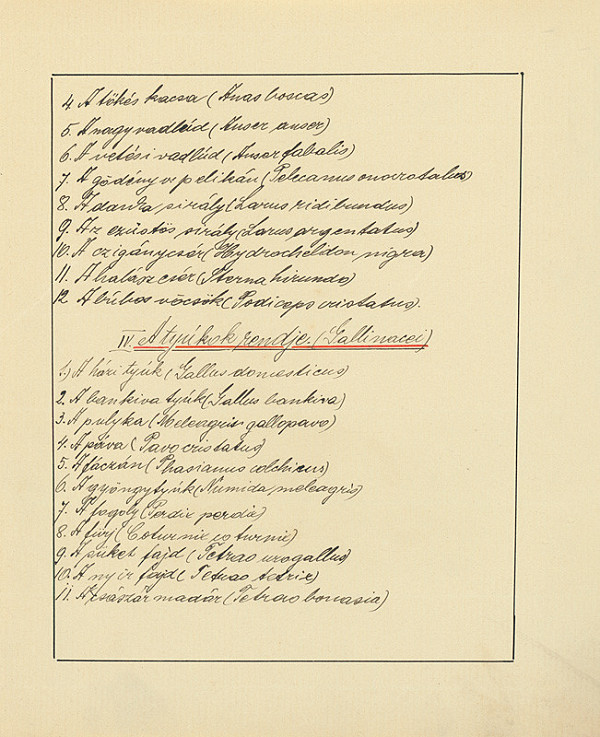 4. A tőkés kacsa (Anas boscas)
5. A nagy vadlúd (Anser anser)
6. A vetési vadlúd (Anser fabalis)
7. A gödény v. pelikán (Pelecanus onocrotalus)
8. A danka sirály (Larus ridibundus)
9. Az ezüstös sirály (Larus argentatus)
10. A czigánycsér (Hydrochelidon nigra)
11. A halász csér (Sterna hirundo)
12. A búbos vöcsök (Podiceps cristatus).
IV. A tyúkok rendje. (Gallinacei)
1.) A házi tyúk (Gallus domesticus)
2. A bankiva tyúk (Gallus bankiva)
3. A pulyka (Meleagris gallopavo)
4. A páva (Pavo cristatus)
5. A fáczán (Phasianus colchicus)
6. A gyöngytyúk (Numida meleagris)
7. A fogoly (Perdix perdix)
8. A fürj (Coturnix coturnix)
9. A süket fajd (Tetrao urogallus)
10. A nyir fajd (Tetrao tetrix)
11. A császármadár (Tetrao bonasia)